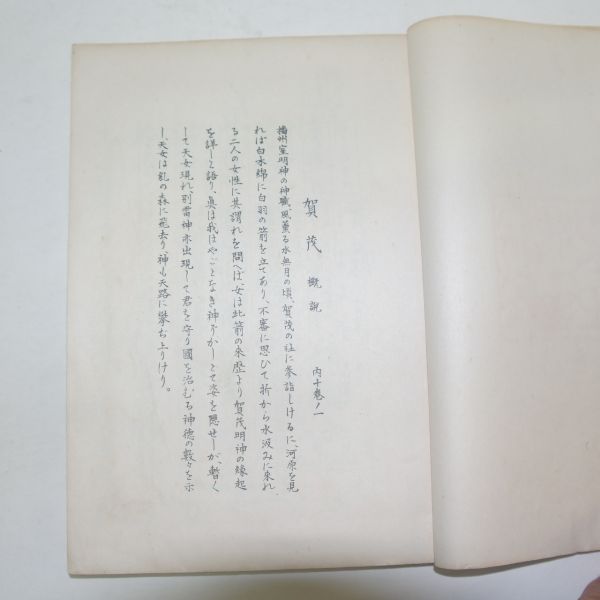 賀茂 概説 内十巻ノ一
播州室明神の神職、風薫る水無月の頃、賀茂の社に参詣しけるに、河原を見
れば白水綿に白羽の箭を立てあり、不審に思ひて折から水汲みに来れ
る二人の女性に其謂れを問へば、女は此箭の来歴より賀茂明神の縁起
を詳しく語り、眞は我はやごとなき神ぞかしとて姿を隠せしが、暫く
して天女現れ、別雷神亦出現して君を守り國を治むる神徳の数々を示
し、天女は糺の森に飛去り、神も天路に攀ぢ上りけり。